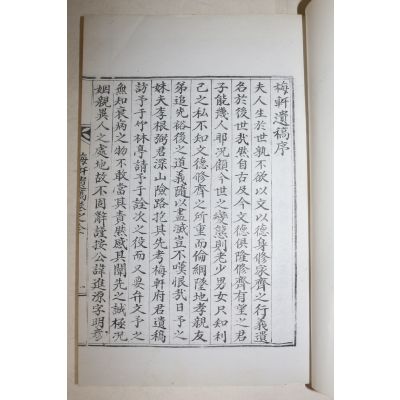 梅軒遺稿序
夫人生於世孰不欲以文以德身修家齊之行義遺
名於後世哉然自古及今文德俱隆修齊有望之君
子能幾人耶况顧今世之變態則老少男女只知利
己之私不知文德修齊之所重而倫綱墜地孝親友
弟追先裕後之道義隨以盡滅豈不嘆恨哉日予之
妹夫李根弼君深山險路抱其先考梅軒府君遺稿
訪予于竹林亭請予于詮次之役而又要弁文予之
無知衰病之物不敢當其責然感其闡先之誠極况
姻親異人之處地故不固辭謹按公諱進源字明彦